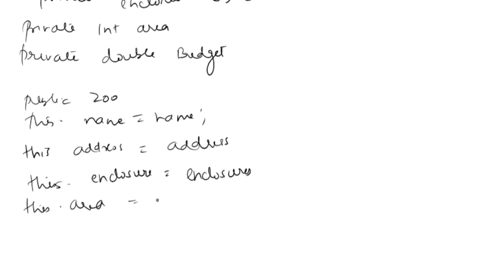 enclosure
private int area
private double Budget
public 200
this. name = name;
this address = address
this. enclosure = enclosures
this. area =